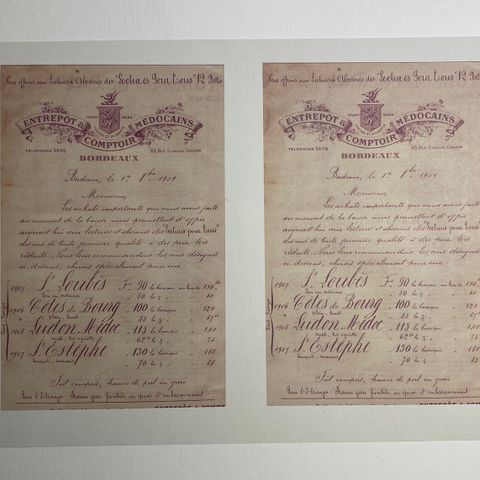 Nous offrons aux Lecteurs & Abonnés des "Lectures Pour Tous"
ENTREPÔT & COMPTOIR MÉDOCAINS
TRADE MARK
TÉLÉPHONE 2609
65, Rue Camille Godard
BORDEAUX
Bordeaux, le 1er 8bre 1909
Monsieur,
Les achats importants que nous avons faits
au moment de la baisse nous permettent d'offrir
aujourd'hui aux lecteurs et abonnés des "Lectures pour Tous"
des vins de toute première qualité à des prix très
réduits. Nous leur recommandons les vins désignés
ci-dessous, choisis spécialement pour eux:
1907 St Loubès F. 90 la barrique
50 la ½
1906 Côtes de Bourg 100 la barrique 125
55 la ½
1906 Ludon Médoc 115 la barrique 140
62.50 la ½ 75
1907 St Estèphe 130 la barrique
70 la ½
Fût compris, franco de port en gare
Pour l'étranger: Franco gare frontière ou quai d'embarquement
ENTREPÔT & COMPT
Nous offrons aux Lecteurs & Abonnés des "Lectures Pour Tous"
ENTREPÔT & COMPTOIR MÉDOCAINS
TRADE MARK
TÉLÉPHONE 2609
65, Rue Camille Godard
BORDEAUX
Bordeaux, le 1er 8bre 1909
Monsieur,
Les achats importants que nous avons faits
au moment de la baisse nous permettent d'offrir
aujourd'hui aux lecteurs et abonnés des "Lectures pour Tous"
des vins de toute première qualité à des prix très
réduits. Nous leur recommandons les vins désignés
ci-dessous, choisis spécialement pour eux:
1907 St Loubès F. 90 la barrique
50 la ½
1906 Côtes de Bourg 100 la barrique
55 la ½
1906 Ludon Médoc 115 la barrique
62.50 la ½
1907 St Estèphe 130 la barrique
70 la ½
Fût compris, franco de port en gare
Pour l'étranger: Franco gare frontière ou quai d'embarquement
ENTREPÔT & COMPT